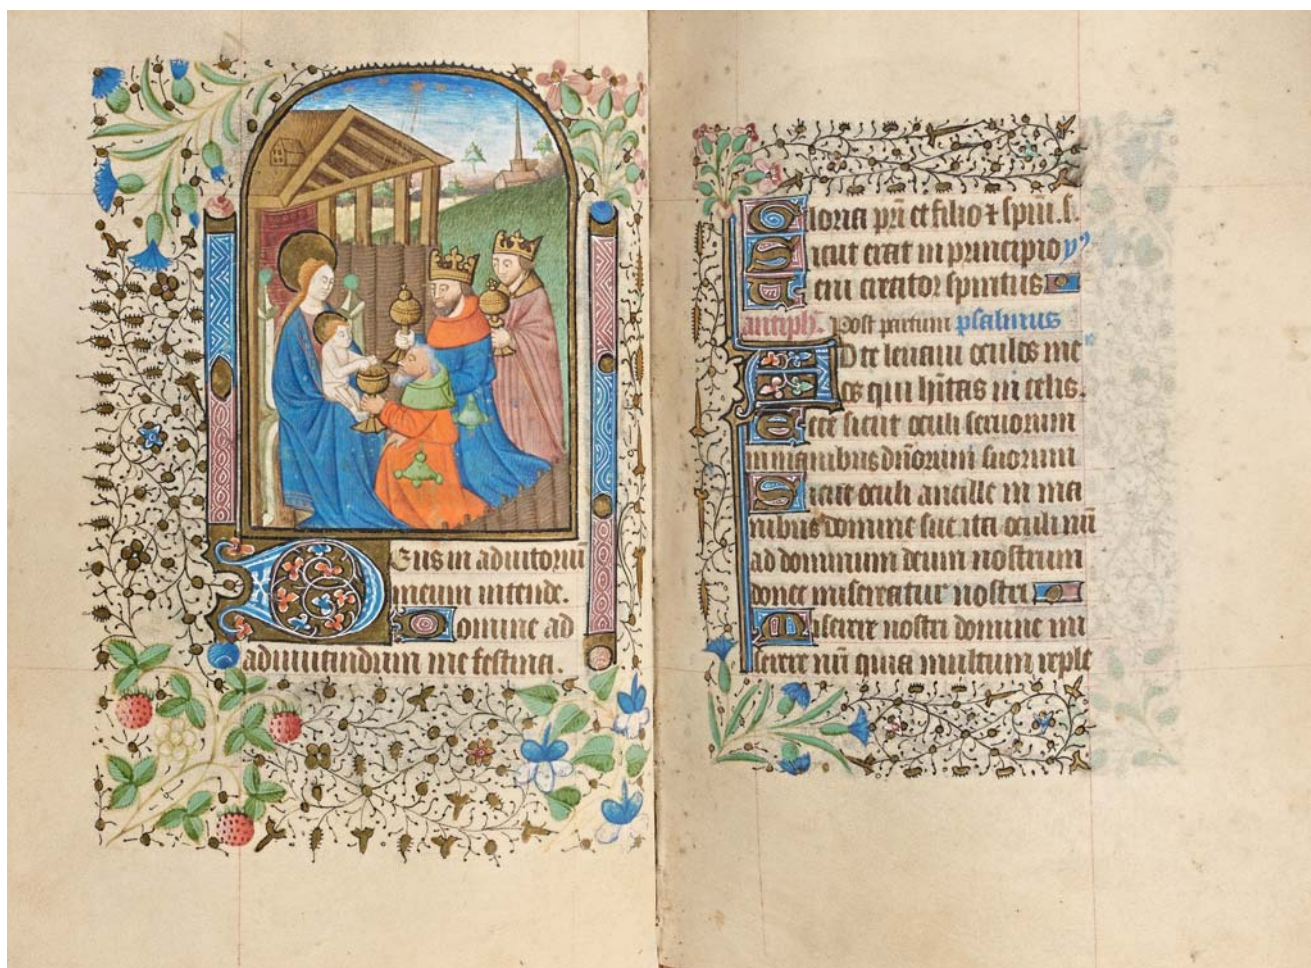 Deus in adiutoriū
meum intende.
Domine ad
adiuuandum me festina.
Gloria pr̄i et filio ⁊ spiīu. s.
Sicut erat in principio yꝰ
Ueni creator spiritus
antiph̄. Post partum psalmus
AD te leuaui oculos me
os qui h̄itas in celis.
Ecce sicut oculi seruorum
in manibus dn̄orum suorum
Sicut oculi ancille in ma
nibus domine sue ita oculi nr̄i
ad dominum deum nostrum
donec misereatur nostri
Miserere nostri domine mi
serere nr̄i quia multum reple